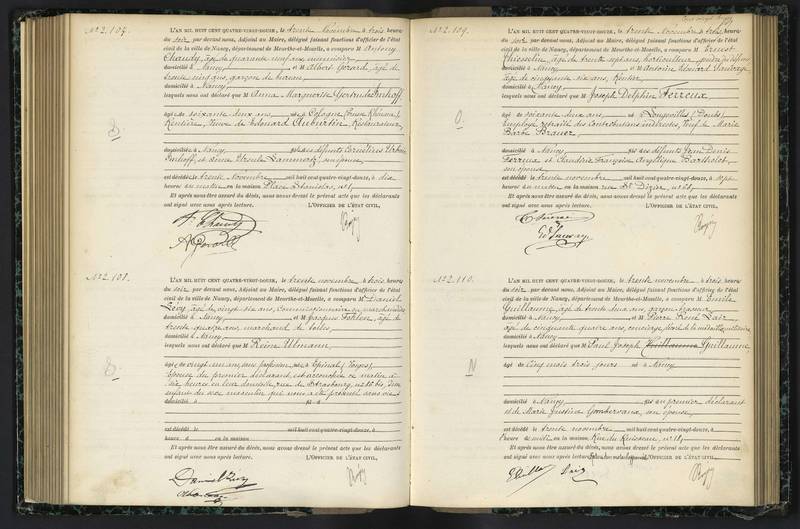 N° 2.107.
L'AN MIL HUIT CENT QUATRE-VINGT-DOUZE, le trente Novembre à trois heures
du soir par devant nous, Adjoint au Maire, délégué faisant fonctions d'officier de l'état
civil de la ville de Nancy, département de Meurthe-et-Moselle, a comparu M Antony
Chaudy, âgé de quarante neuf ans, menuisier
domicilié à Nancy et M Albert Gérard, âgé de
trente cinq ans, garçon de bureau
domicilié à Nancy
lesquels nous ont déclaré que M Anna Marguerite Gertrude Imhoff
âgé de soixante deux ans né à Cologne (Prusse Rhénane)
Rentière, Veuve de Edouard Auburtin, Restaurateur,
domicilié à Nancy, fils des défunts Cornélius Urbain
Imhoff, et dame Ursule Lammertz, son épouse
est décédé le trente Novembre mil huit cent quatre-vingt-douze, à dix
heures du matin en la maison Place Stanislas, n° 1,
Et après nous être assuré du décès, nous avons dressé le présent acte que les déclarants
ont signé avec nous après lecture. L'OFFICIER DE L'ÉTAT CIVIL,
N° 2.108.
L'AN MIL HUIT CENT QUATRE-VINGT-DOUZE, le trente novembre à trois heures
du soir par devant nous, Adjoint au Maire, délégué faisant fonctions d'officier de l'état
civil de la ville de Nancy, département de Meurthe-et-Moselle, a comparu M Daniel
Lévy, âgé de vingt six ans, Commissionnaire en marchandises
domicilié à Nancy et M Jacques Fohlen, âgé de
trente quatre ans, marchand de toiles,
domicilié à Nancy
lesquels nous ont déclaré que M Reine Ulmann
âgé de vingt un ans, sans profession, née à Epinal (Vosges)
épouse du premier déclarant, est accouchée ce matin à
dix heures en leur domicile rue de Strasbourg, d'un
enfant du sexe masculin qui nous a été présenté sans vie
domicilié à fils de
est décédé le mil huit cent quatre-vingt-douze, à
heures en la maison
Et après nous être assuré du décès, nous avons dressé le présent acte que les déclarants
ont signé avec nous après lecture. L'OFFICIER DE L'ÉTAT CIVIL,
N° 2.109.
L'AN MIL HUIT CENT QUATRE-VINGT-DOUZE, le trente Novembre à trois heures
du soir par devant nous, Adjoint au Maire, délégué faisant fonctions d'officier de l'état
civil de la ville de Nancy, département de Meurthe-et-Moselle, a comparu M Ernest
âgé de trente sept ans, horticulteur, gendre du défunt
domicilié à Nancy et M Antoine Edouard
âgé de cinquante six ans, Rentier,
domicilié à Nancy,
lesquels nous ont déclaré que M Joseph Delphin Ferreux
âgé de soixante deux ans né à Longevilles (Doubs)
Employé retraité des Contributions indirectes, Veuf de Marie
Barbe Brauer,
domicilié à Nancy fils des défunts Jean Denis
Ferreux et Claudine Françoise Angélique Barthelet,
son épouse
est décédé le trente novembre mil huit cent quatre-vingt-douze, à sept
heures du matin en la maison rue St Dizier,
Et après nous être assuré du décès, nous avons dressé le présent acte que les déclarants
ont signé avec nous après lecture. L'OFFICIER DE L'ÉTAT CIVIL,
N° 2.110.
L'AN MIL HUIT CENT QUATRE-VINGT-DOUZE, le trente novembre à trois heures
du soir par devant nous, Adjoint au Maire, délégué faisant fonctions d'officier de l'état
civil de la ville de Nancy, département de Meurthe-et-Moselle, a comparu M Emile
Guillaume, âgé de trente deux ans, garçon brasseur
domicilié à Nancy et M Pierre René Lair
âgé de cinquante quatre ans, concierge, décoré de la médaille militaire
domicilié à Nancy
lesquels nous ont déclaré que M Paul Joseph Guillaume
âgé de Cinq mois trois jours né à Nancy
domicilié à Nancy fils du premier déclarant
et de Marie Justine Gombervaux, son épouse
est décédé le trente novembre mil huit cent quatre-vingt-douze, à
heure de midi en la maison Rue du Ruisseau, n° 11,
Et après nous être assuré du décès, nous avons dressé le présent acte que les déclarants
ont signé avec nous après lecture. L'OFFICIER DE L'ÉTAT CIVIL,